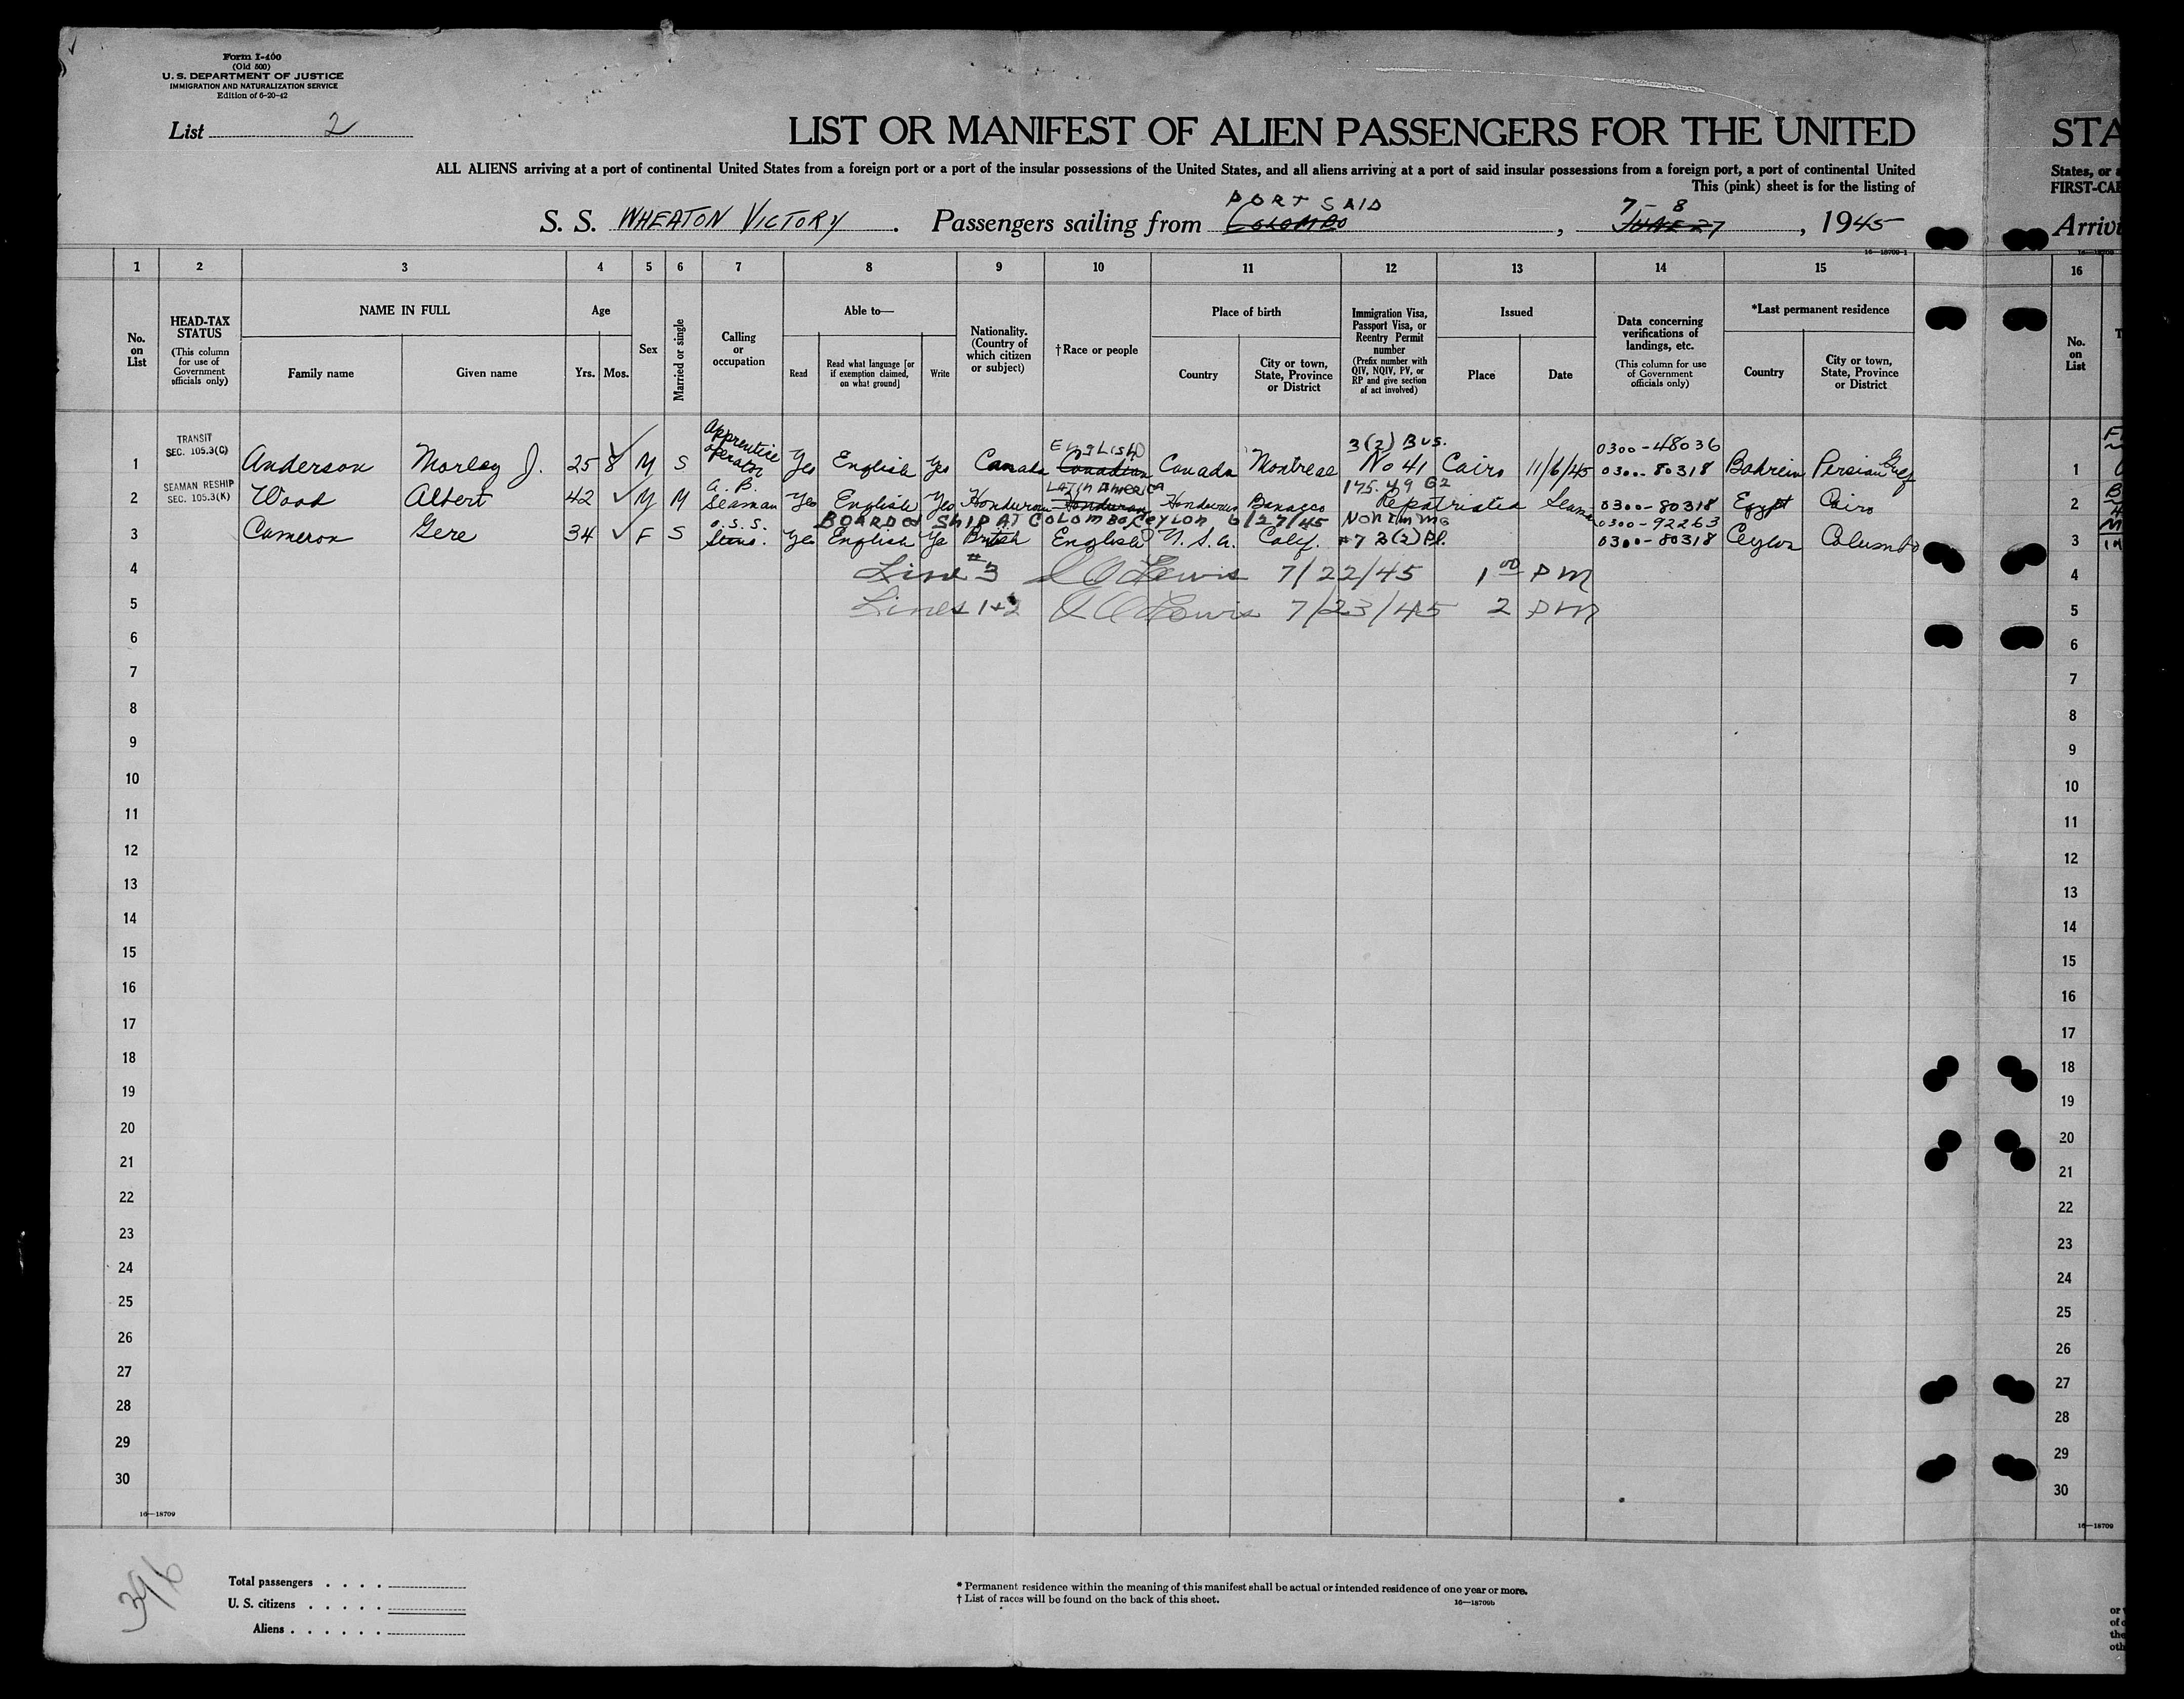 Form I-400
(Old 500)
U. S. DEPARTMENT OF JUSTICE
IMMIGRATION AND NATURALIZATION SERVICE
Edition of 6-20-42
List 2
LIST OR MANIFEST OF ALIEN PASSENGERS FOR THE UNITED
STA
ALL ALIENS arriving at a port of continental United States from a foreign port or a port of the insular possessions of the United States, and all aliens arriving at a port of said insular possessions from a foreign port, a port of continental United
States, or a
This (pink) sheet is for the listing of
FIRST-CAB
PORT SAID 7-8
S. S. WHEATON VICTORY. Passengers sailing from COLOMBO, JUNE 27, 1945
Arrivi
16—18709-1
1 2 3 4 5 6 7 8 9 10 11 12 13 14 15 16
No. on List
HEAD-TAX STATUS
(This column for use of Government officials only)
NAME IN FULL
Family name
Given name
Age
Yrs. Mos.
Sex
Married or single
Calling or occupation
Able to—
Read
Read what language [or if exemption claimed, on what ground]
Write
Nationality. (Country of which citizen or subject)
†Race or people
Place of birth
Country
City or town, State, Province or District
Immigration Visa, Passport Visa, or Reentry Permit number
(Prefix number with QIV, NQIV, PV, or RP and give section of act involved)
Issued
Place
Date
Data concerning verifications of landings, etc.
(This column for use of Government officials only)
*Last permanent residence
Country
City or town, State, Province or District
No. on List
TRANSIT SEC. 105.3(C) Apprentice operator ENGLISH 3(2) Bus. 0300-48036
1 Anderson Morley J. 25 8 M S Yes English Yes Canada Canadian Canada Montreal No 41 Cairo 11/6/45 0300-80318 Bahrein Persian Gulf 1
SEAMAN RESHIP SEC. 105.3(K) A. B. LATIN AMERICA 175.49 G2
2 Wood Albert 42 M M Seaman Yes English Yes Honduran Honduran Honduras Bonacco Repatriated Seaman 0300-80318 Egypt Cairo 2
O.S.S. BOARDED SHIP AT COLOMBO, CEYLON 6/27/45 NON IMMG 0300-92263
3 Cameron Gere 34 F S Steno. Yes English Ye British English U.S.A. Calif. #7 3(2) Pl. 0300-80318 Ceylon Columbo 3
4 Line #3 Lewis 7/22/45 1 00 PM 4
5 Lines 1+2 Lewis 7/23/45 2 PM 5
6 6
7 7
8 8
9 9
10 10
11 11
12 12
13 13
14 14
15 15
16 16
17 17
18 18
19 19
20 20
21 21
22 22
23 23
24 24
25 25
26 26
27 27
28 28
29 29
30 30
16—18709
16—18709
396
Total passengers . . . .
U. S. citizens . . . . .
Aliens . . . . . .
* Permanent residence within the meaning of this manifest shall be actual or intended residence of one year or more.
† List of races will be found on the back of this sheet.
16—18709b